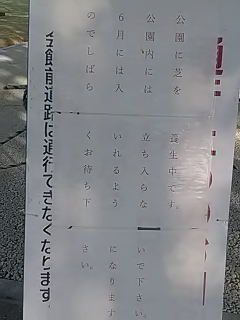 公園に芝を養生中です。
公園内には立ち入らないで下さい。
6月には入いれるようになります
のでしばらくお待ち下さい。
館前道路は通行できなくなります